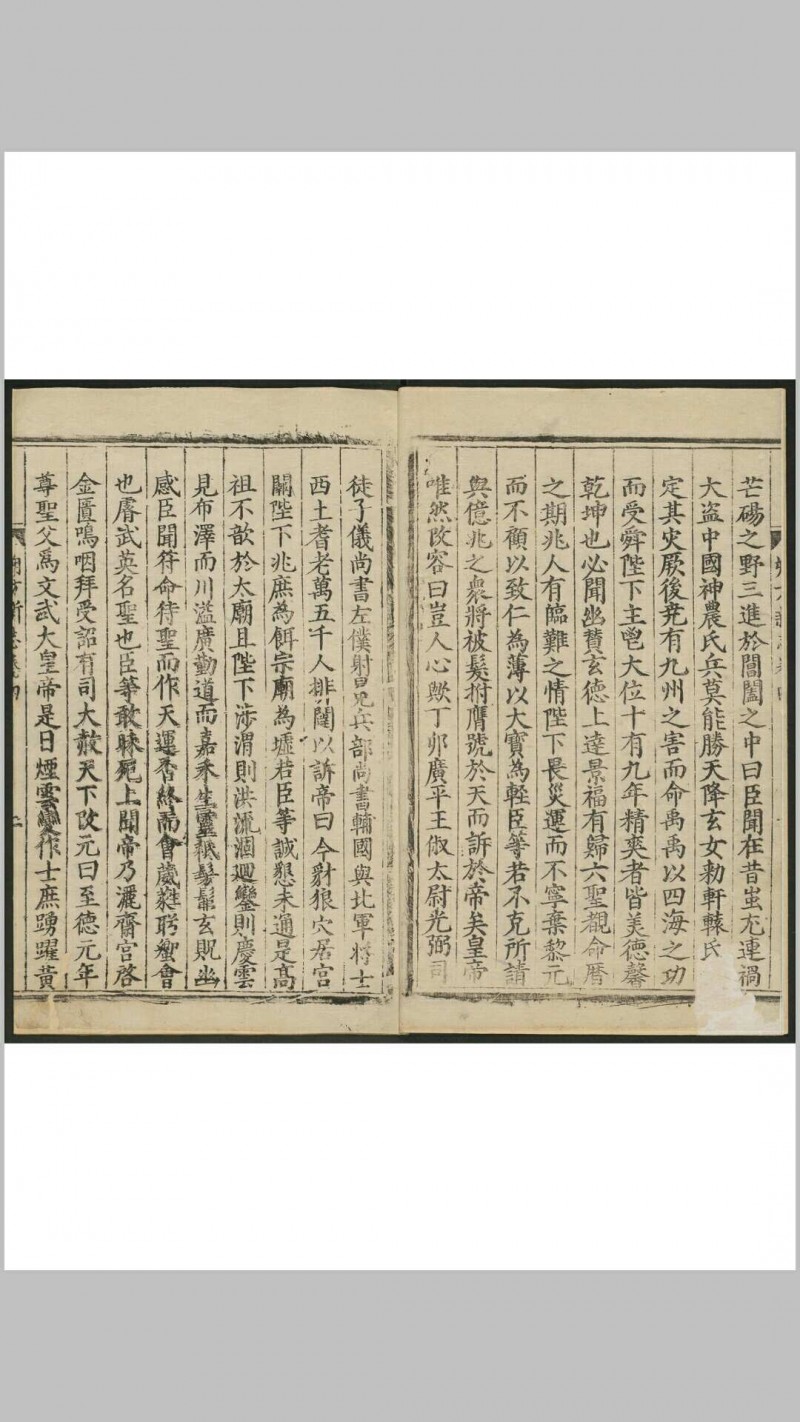 芒碭之野三進於閶闔之中曰臣聞在昔蚩尤連禍
大盜中國神農氏兵莫能勝天降玄女勅軒轅氏
定其灾厥後堯有九州之害而命禹禹以四海之功
而受舜陛下主鬯大位十有九年精爽者皆美德馨
乾坤也必聞幽贊玄德上達景福有歸六聖覩命曆
之期兆人有臨難之情陛下畏災運而不寧棄黎元
而不顧以致仁為薄以大寶為輕臣等若不克所請
與億兆之衆將被髮拊膺號於天而訴於帝矣皇帝
唯然改容曰豈人心歟丁卯廣平王俶太尉光弼司
徒子儀尚書左僕射冕兵部尚書輔國與比軍將士
西土耆老萬五千人排闥以訴帝曰今豺狼穴居宮
闕陛下兆庶為餌宗廟為墟若臣等誠懇未通是髙
祖不歆於太廟且陛下涉渭則洪流涸迴鑾則慶雲
見布澤而川溢廣勤道而嘉禾生靈祗髣髴玄貺幽
感臣聞符命待聖而作天運否終而會歲蕤聆蛩會
也膺武英名聖也臣等敢昧死上聞帝乃灑齋宮啓
金匱嗚咽拜受詔有司大赦天下改元曰至德元年
尊聖父爲文武大皇帝是日煙雲變作士庶踴躍黃
朔方新志卷四
二